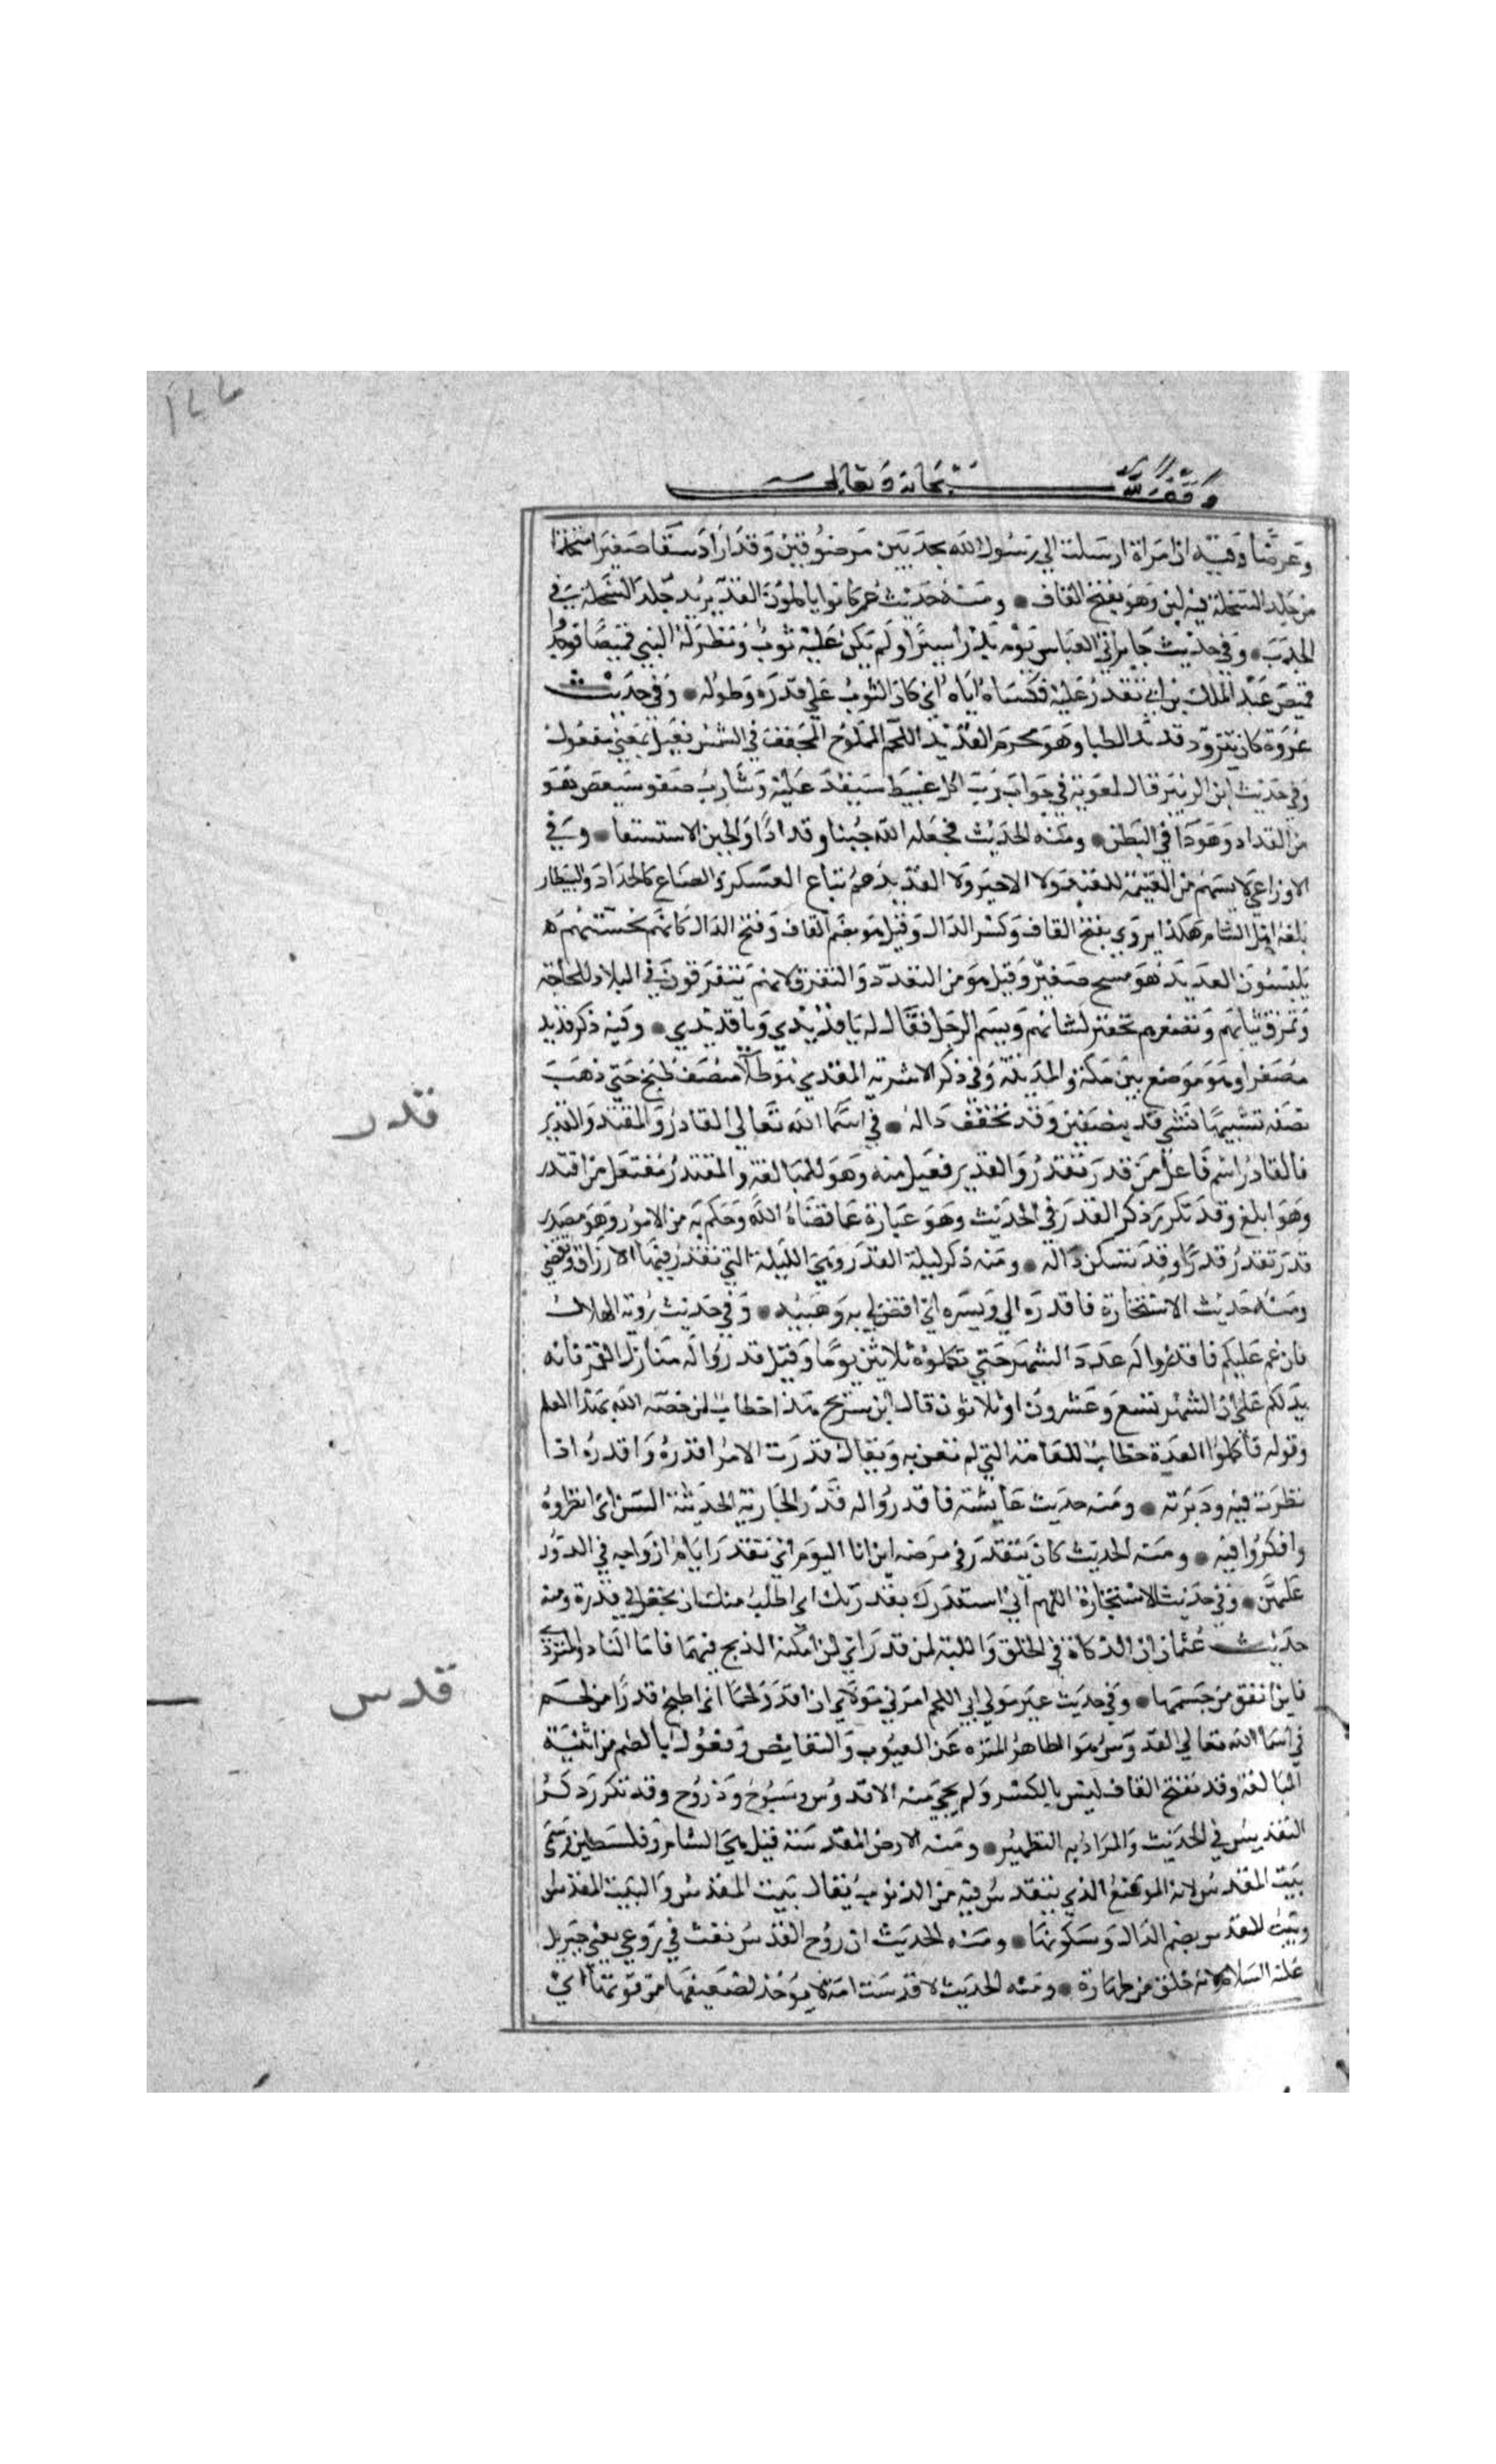 وقف لله سبحانه وتعالى
وعرضا وفيه ان امراة ارسلت الي رسول الله بجديين مرضوفين وقد اراد سقا صغيرا متخذا
من جلد السخلة فيه لبن وهو بفتح القاف ومنه حديث عمر كانوا ياكلون القد يريد جلد السخلة في
الجدب وفي حديث جابر اتي العباس يوم بدر اسيرا ولم يكن عليه ثوب ونظر له النبي قميصا فوجدوا
قميص عبد الملك بن ابي تقدر عليه فكساه اياه اي كان الثوب علي قدره وطوله وفي حديث
عروة كان يتزود قديد الظبا وهو محرم القديد اللحم المملوح المجفف في الشمس فعيل بمعني مفعول
وفي حديث ابن الزبير قال لمعوية في جواب رب اكل عبيط سيقد عليه وشارب صفو سيغص هو
من القداد وهو دا في البطن ومنه الحديث فجعله الله حبنا وقدادا والحبن الاستسقا وفي
الاوزاعي لا يسهم من الغنيمة للعبد ولا الاجير ولا القديد هم تباع العسكر والصناع كالحداد والبيطار
بلغة اهل الشام هكذا يروي بفتح القاف وكسر الدال وقيل هو بضم القاف وفتح الدال كانهم لخستهم
يلبسون القديد هو مسح صغير وقيل هو من التقدد والتفرق لانهم يتفرقون في البلاد للحاجة
وتمزق ثيابهم وتصغيرهم تحقير لشانهم ويشتم الرجل فقال له يا قديدي ويا قديدي وفيه ذكر قديد
مصغرا وهو موضع بين مكة والمدينة وفي ذكر الاشربة المقدي هو طلا منصف طبخ حتي ذهب
نصفه تشبيها بشي قد بنصفين وقد تخفف داله في اسما الله تعالي القادر والمقتدر والقدير
فالقادر اسم فاعل من قدر تقدر والقدير فعيل منه وهو للمبالغة والمقتدر مفتعل من اقتدر
وهو ابلغ وقد تكرر ذكر القدر في الحديث وهو عبارة عما قضاه الله وحكم به من الامور وهو مصدر
قدر تقدر قدرا وقد تسكن داله ومنه ذكر ليلة القدر وهي الليلة التي تقدر فيها الارزاق وتقضي
ومنه حديث الاستخارة فاقدره لي ويسره اي اقض لي به وهيئه وفي حديث رؤية الهلال
فان غم عليكم فاقدروا له عدد الشهر حتي تكملوه ثلاثين يوما وقيل قدروا له منازل القمر فانه
يدلكم علي ان الشهر تسع وعشرون او ثلاثون قال ابن سريج هذا خطاب لمن خصه الله بهذا العلم
وقوله فاكملوا العدة خطاب للعامة التي لم تعن به ويقال قدرت الامر اقدره واقدره اذا
نظرت فيه ودبرته ومنه حديث عايشة فاقدروا له قدر الجارية الحديثة السن اي انظروه
وافكروا فيه ومنه الحديث كان يتقدر في مرضه اين انا اليوم اي تقدر ايام ازواجه في الدور
عليهن وفي حديث الاستخارة اللهم اني استقدرك بقدرتك اي اطلب منك ان تجعل لي قدرة ومنه
حديث عثمان ان الذكاة في الحلق واللبة لمن قدر اي لمن امكنه الذبح فيهما فاما الناد والمتردي
فاين اتفق من جسمها وفي حديث عمير مولي ابي اللحم امرني مولاي ان اقدر لحما اي اطبخ قدرا من لحم
في اسما الله تعالي القدوس هو الطاهر المنزه عن العيوب والنقايص وفعول بالضم من ابنية
المبالغة وقد تفتح القاف ليس بالكثير ولم يجي منه الا قدوس وسبوح وذروح وقد تكرر ذكر
التقديس في الحديث والمراد به التطهير ومنه الارض المقدسة قيل هي الشام وفلسطين وسمي
بيت المقدس لانه الموضع الذي يتقدس فيه من الذنوب يقال بيت المقدس والبيت المقدس
وبيت المقدس بضم الدال وسكونها ومنه الحديث ان روح القدس نفث في روعي يعني جبريل
عليه السلام لانه خلق من طهارة ومنه الحديث لا قدست امة لا يؤخذ لضعيفها من قويها اي
قدر
قدس